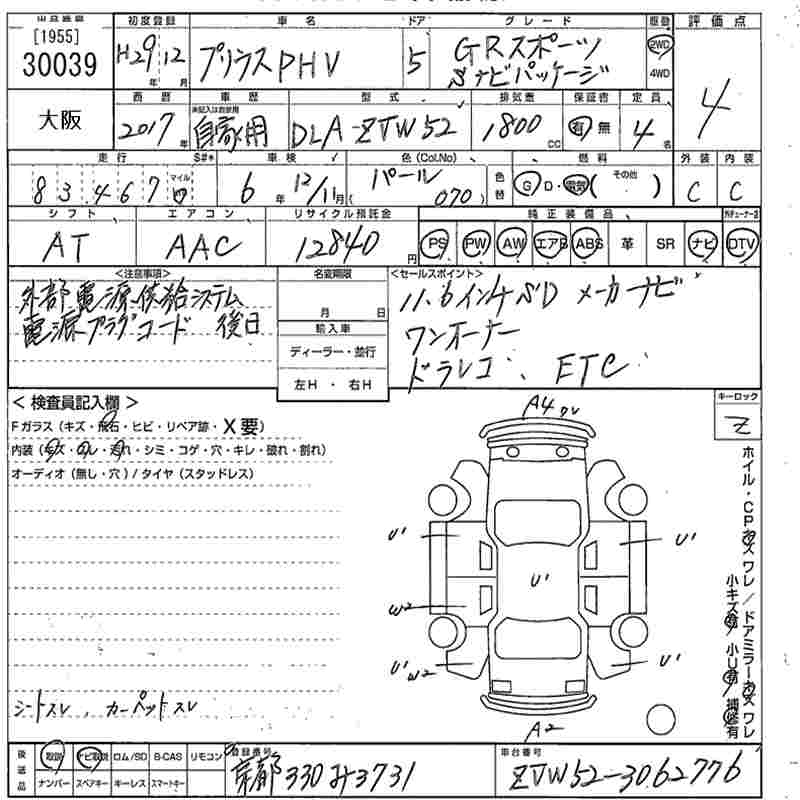 [1955]
30039
初度登録 車名 ドア グレード 駆動 評価点
H29年12月 プリウスPHV 5 GRスポーツ
Sナビパッケージ 2WD
4WD
4
大阪
西暦 車歴 型式 排気量 保証書 定員
未記入は自家用
2017年 自家用 DLA-ZVW52 1800cc 有 無 4名
走行 S#* 車検 色(Col.No) 色替 燃料 外装 内装
83467 マイル 6年12/11月 パール 070) G・D・電気(その他 ) C C
シフト エアコン リサイクル預託金 純正装備品
AT AAC 12840円 PS PW AW エアB ABS 革 SR ナビ DTV
<注意事項> 名変期限 <セールスポイント>
外部電源供給システム
電源プラグコード 後日
月 日
輸入車
ディーラー・並行
左H ・ 右H
11.6インチSD メーカーナビ
ワンオーナー
ドラレコ、ETC
キーロック
Z
< 検査員記入欄 >
Fガラス(キズ・飛石・ヒビ・リペア跡・X要)
内装(キズ・ヨレ・汚れ・シミ・コゲ・穴・キレ・破れ・割れ)
オーディオ(無し・穴)/タイヤ(スタッドレス)
A4
U'
U'
U'
W2
U' W2
U'
A2
ホイル・CPキズ ワレ/ドアミラーキズ ワレ
小キズ有 小U有 補修有
シートスレ、カーペットスレ
後送品 取説 ナビ取説 ロム/SD B-CAS リモコン
ナンバー スペアキー キーレス スマートキー
登録番号
京都330み3731
車台番号
ZVW52-3062776